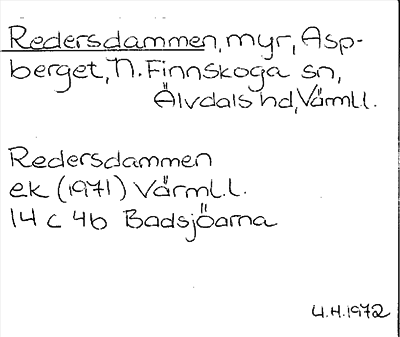 Redersdammen, myr, Asp-
berget, N. Finnskoga sn,
Älvdals hd, Värml.l.
Redersdammen
ek (1971) Värml.l.
14 c 4b Badsjöarna
U.H.1972